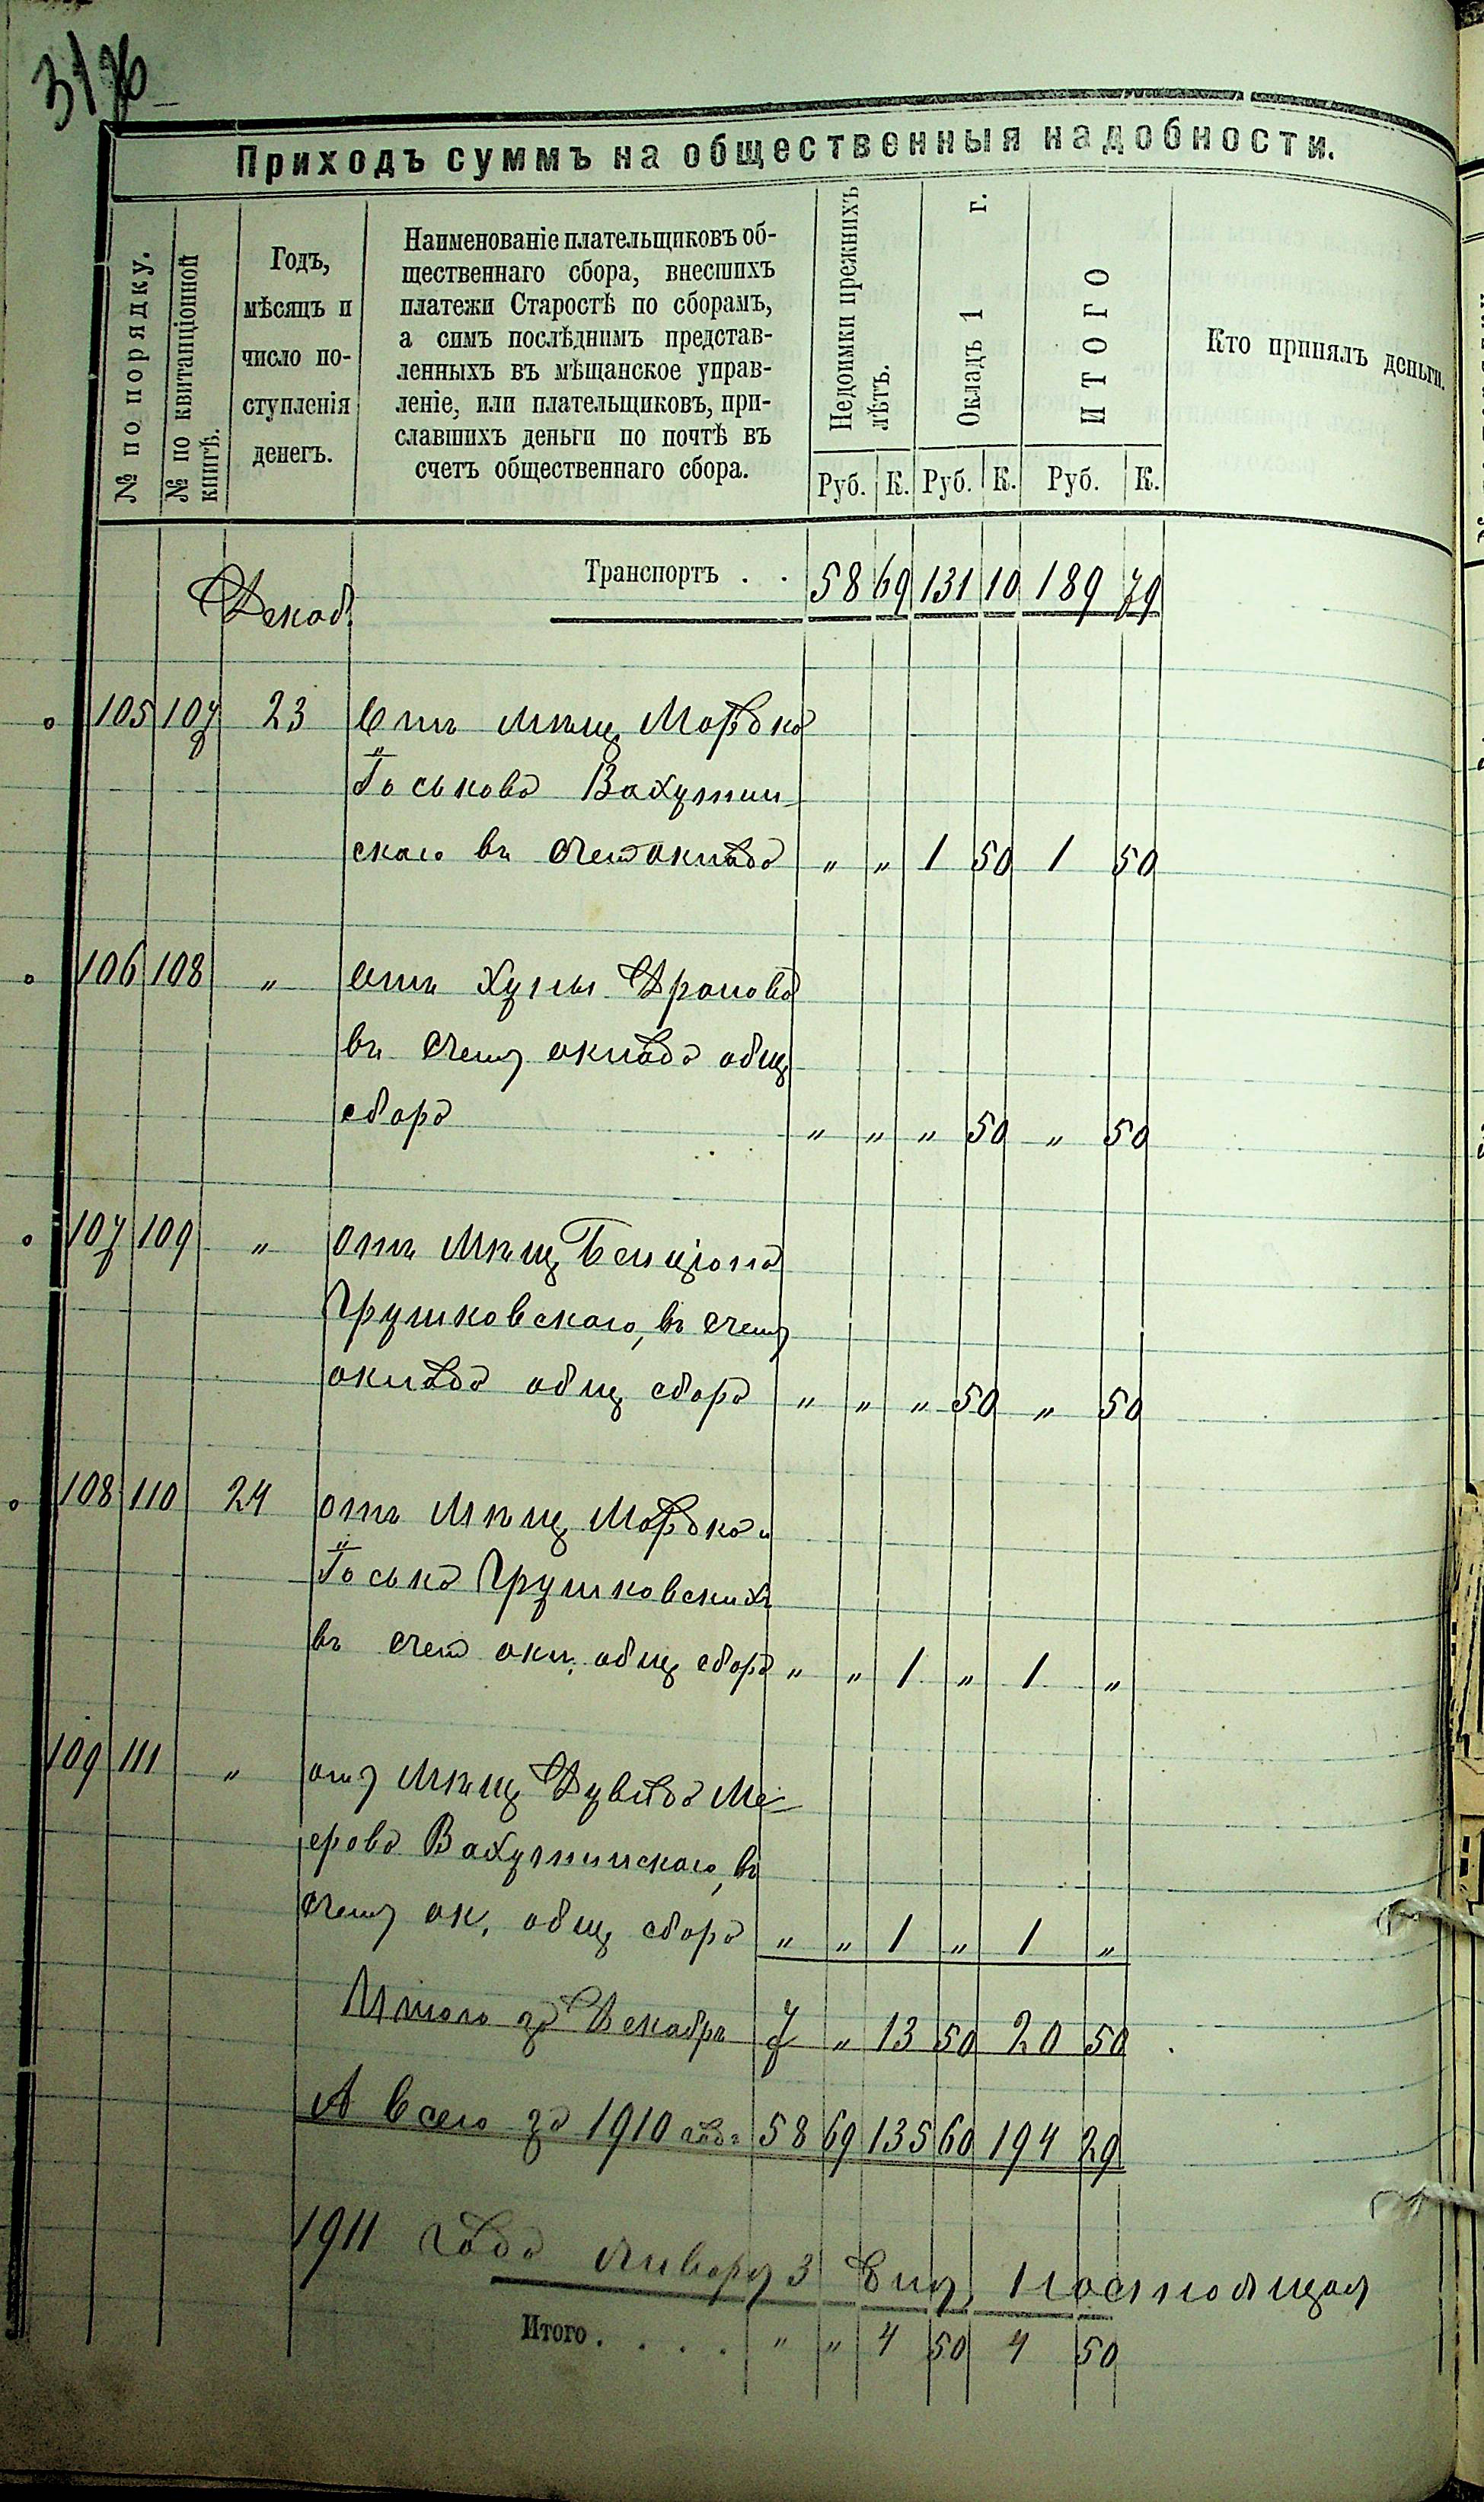 Приходъ суммъ на общественныя надобности.
№ по порядку.
№ по квитанціонной книгѣ.
Годъ, мѣсяцъ и число поступленія денегъ.
Наименованіе плательщиковъ об-
щественнаго сбора, внесшихъ
платежи Старостѣ по сборамъ,
а симъ послѣднимъ представ-
ленныхъ въ мѣщанское управ-
леніе, или плательщиковъ, при-
славшихъ деньги по почтѣ въ
счетъ общественнаго сбора.
Недоимки прежнихъ лѣтъ.
Окладъ 1 г.
ИТОГО
Кто принялъ деньги.
Руб. К. Руб. К. Руб. К.
Транспортъ . . 58 69 131 10 189 79
Декаб.
105 107 23 Отъ Мѣщ Мордка
Іоськова Вахутин-
скаго въ счет оклада „ „ 1 50 1 50
106 108 „ отъ Хуны Дранова
въ счетъ оклада общ
сбора „ „ „ 50 „ 50
107 109 „ отъ Мѣщ Бенціона
Грушковскаго, въ счетъ
оклада общ сбора „ „ „ 50 „ 50
108 110 24 отъ Мѣщ Мордка и
Іоська Грушковскихъ
въ счет окл, общ сбора „ „ 1 „ 1 „
109 111 „ отъ Мѣщ Дувида Ме-
ерова Вахутинскаго, въ
счетъ ок, общ сбора „ „ 1 „ 1 „
Итого за Декабрь 7 „ 13 50 20 50
А всего за 1910 годъ 58 69 135 60 194 29
1911 года Января 3 дня, Настоящая
Итого. . . . „ „ 4 50 4 50